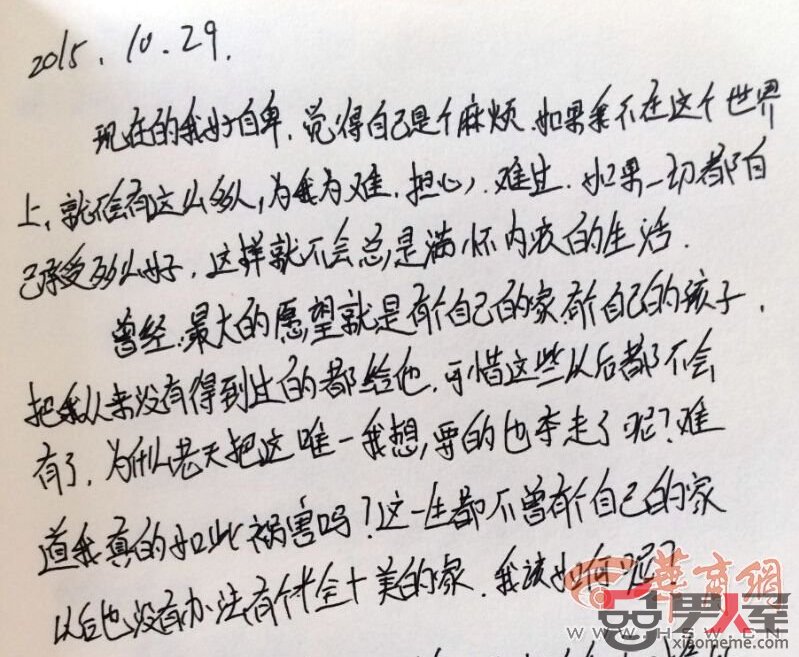 2015.10.29.
现在的我好自卑.觉得自己是个麻烦.如果我不在这个世界
上,就不会有这么多人,为我为难.担心,难过.如果一切都自
己承受多么好,这样就不会总是满怀内疚的生活.
曾经.最大的愿望就是有个自己的家.有个自己的孩子.
把我从来没有得到过的都给他.可惜这些以后都不会
有了.为什么老天把这唯一我想,要的也夺走了呢?难
道我真的如此祸害吗?这一生都不曾有个自己的家
以后也没有办法有个十全十美的家.我该如何呢?
华商网
WWW.HSW.CN
男人窝
xiaomeme.com